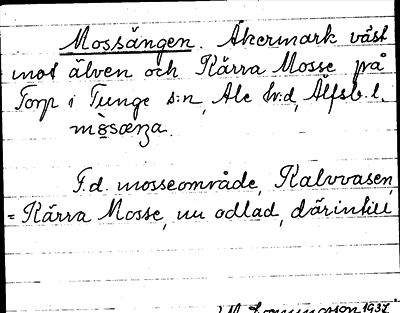 Mossängen. Åkermark väst
mot älven och Kärra Mosse på
Torp i Tunge s:n, Ale hr:d, Älfsb. l.
F.d. mosseområde, Kalvvasen,
= Kärra Mosse, nu odlad, därintill
1937